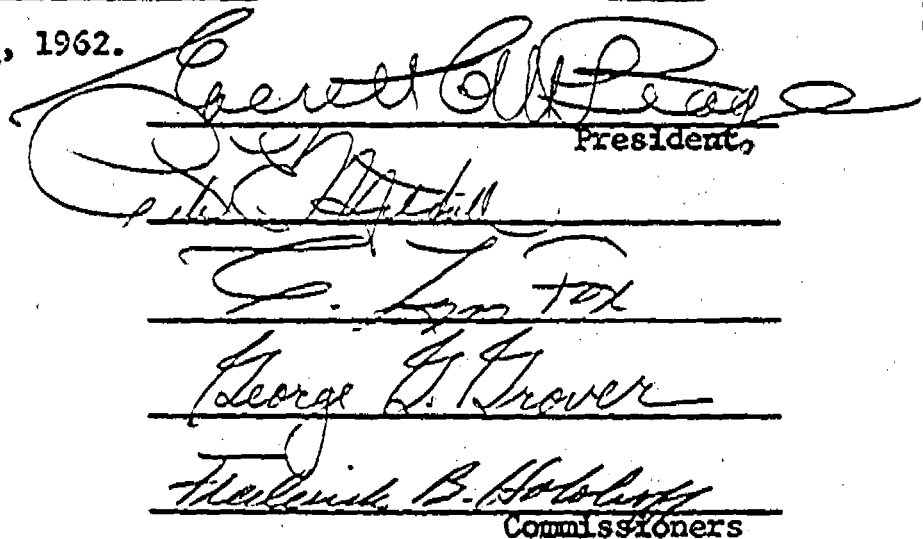 , 1962.
Everett C. McKeage
President
C. Lyn Fox
George G. Grover
Frederick B. Holoboff
Commissioners